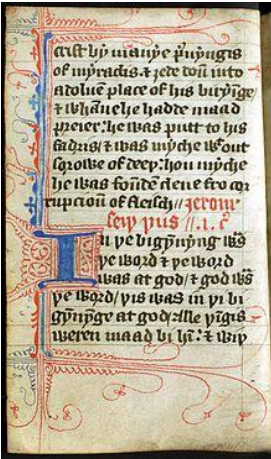 crist by manye p̉uyngis
of myraclis ⁊ ȝede doū into
a doluē place of his biryinge/
⁊ whāne he hadde maad
preier: he was putt to his
fadris/ ⁊ was myche wᵗout
sorowe of deeþ: hou myche
he was foūdē clene fro cor
rupcioun of fleisch// Jerom
seiþ þus //.i.cᵒ
In þe bigynnyng was
þe word ⁊ þe word
was at god/ ⁊ god was
þe word/ þis was in þe bi
gynnynge at god/ alle þīgis
weren maad bi hī: ⁊ wiþ